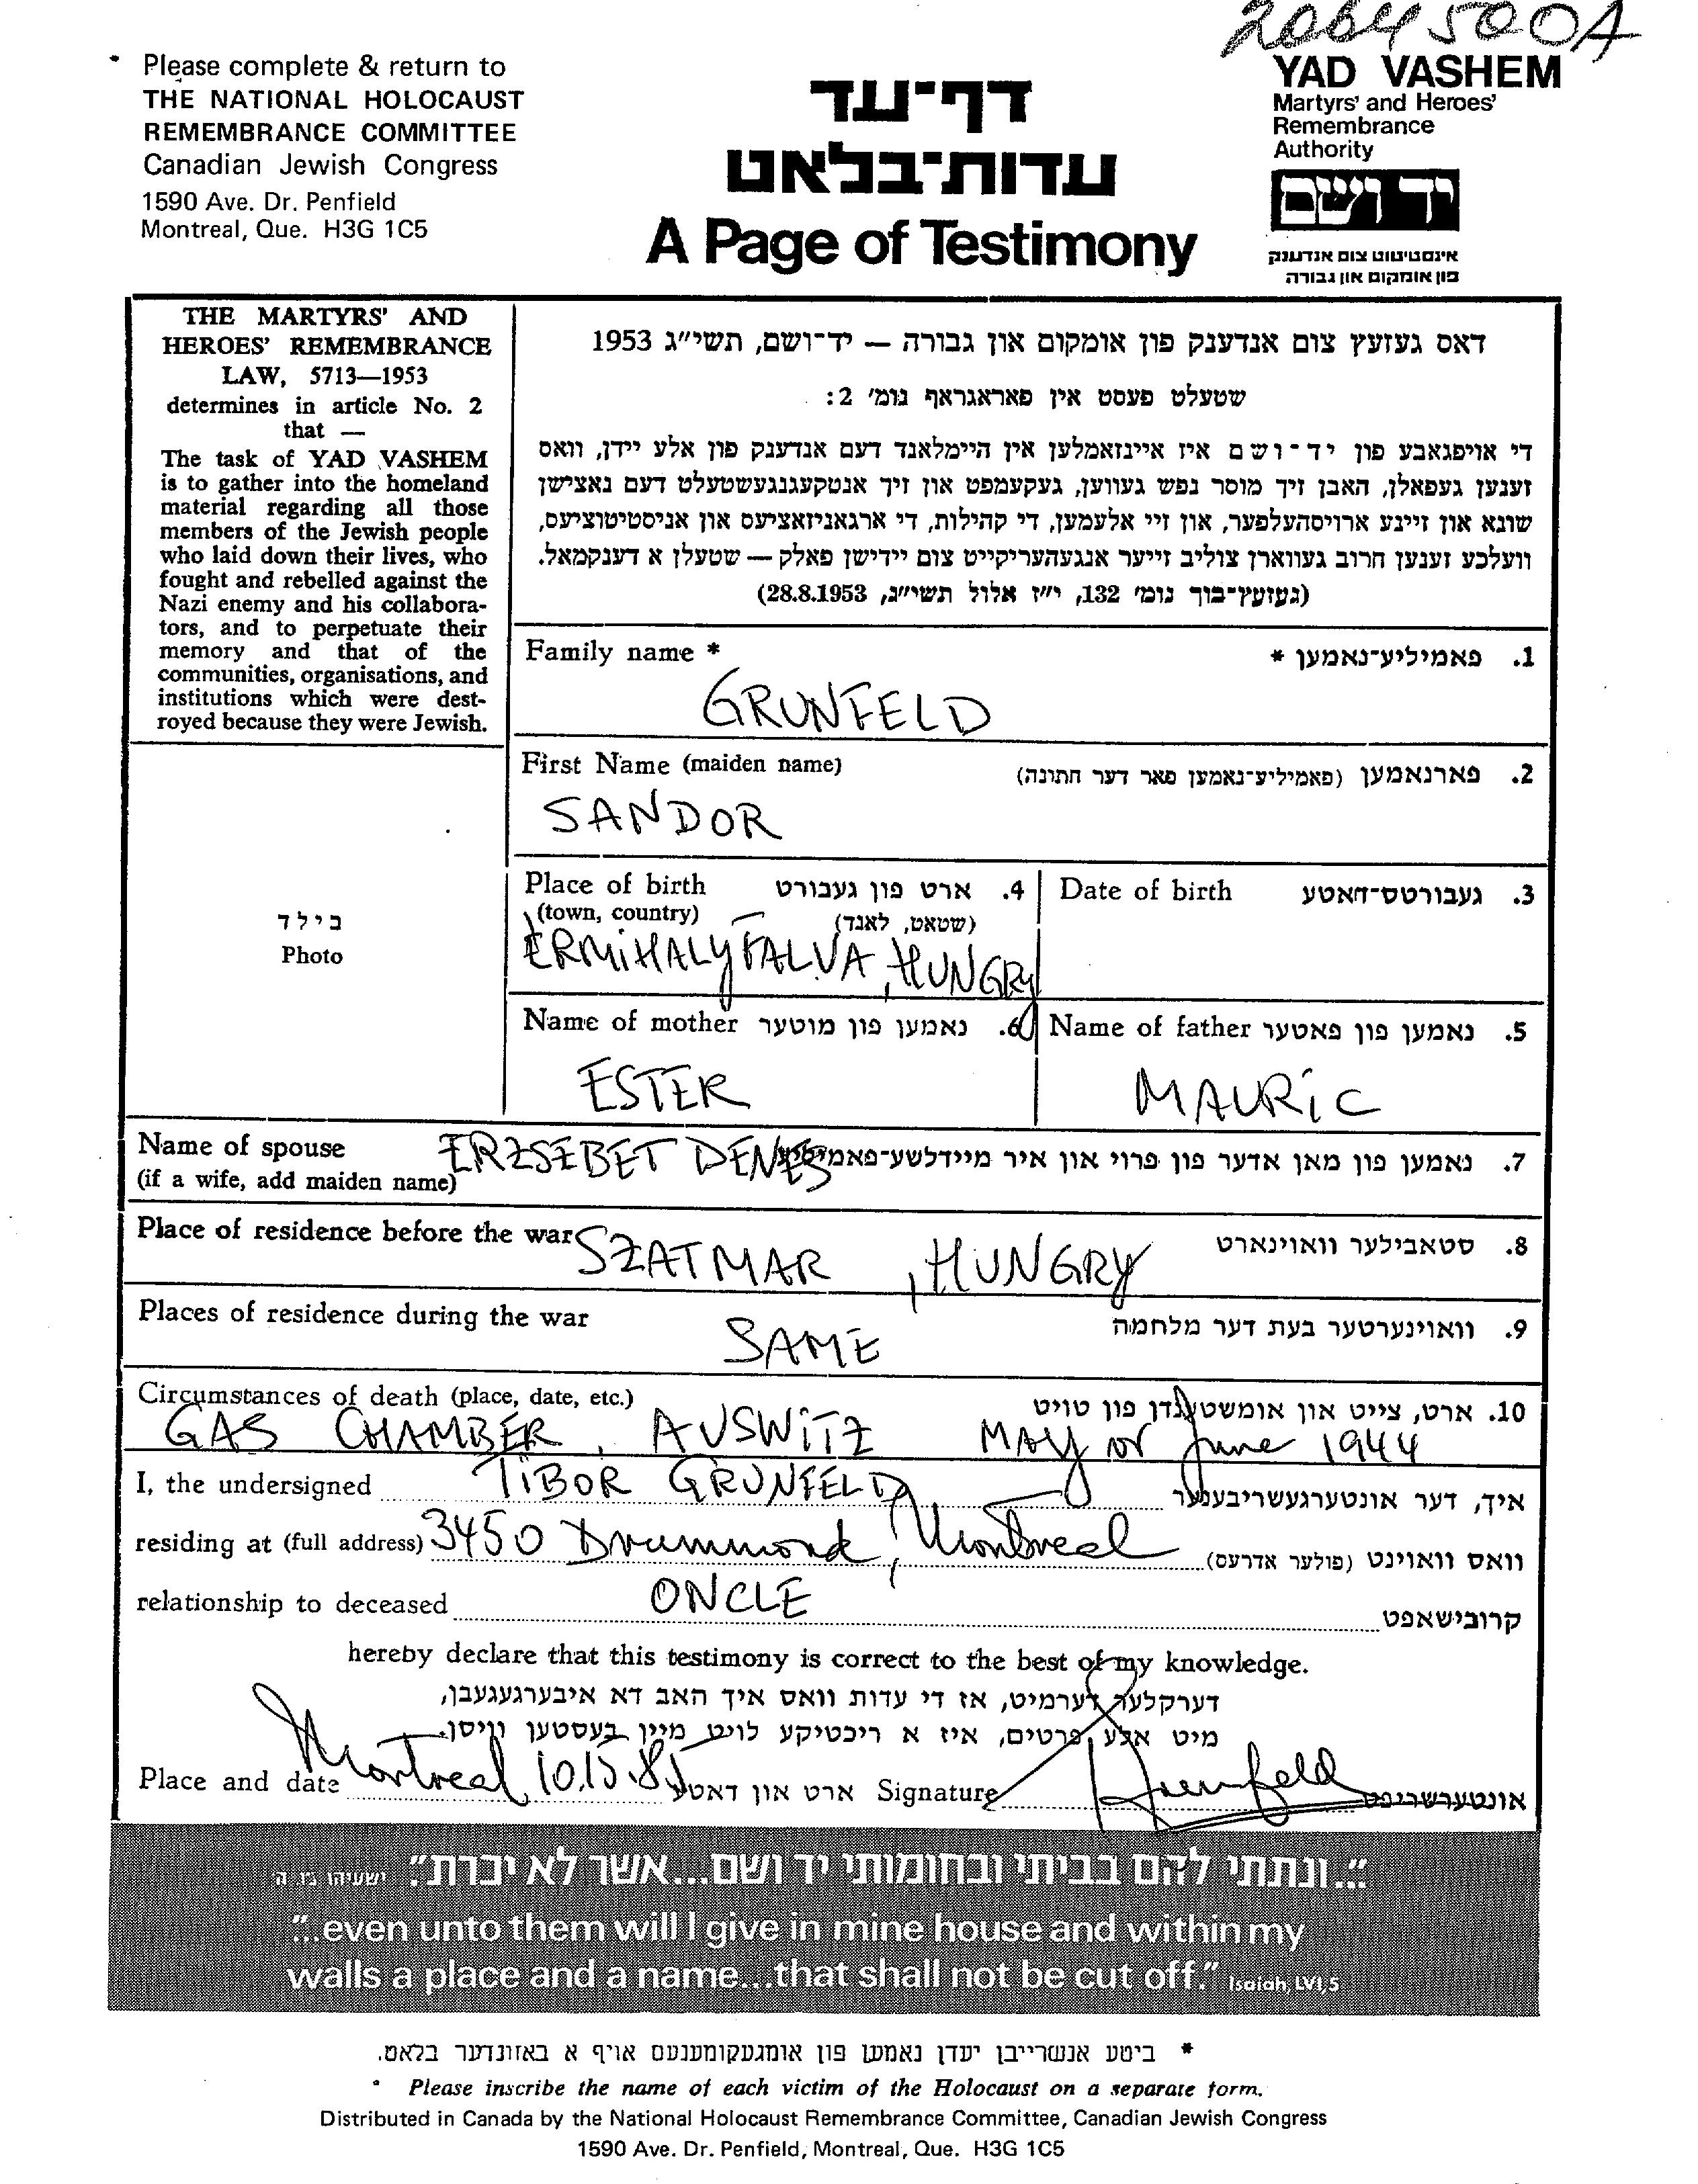 2064500A
Please complete & return to
THE NATIONAL HOLOCAUST
REMEMBRANCE COMMITTEE
Canadian Jewish Congress
1590 Ave. Dr. Penfield
Montreal, Que. H3G 1C5
דף־עד
עדות־בלאט
A Page of Testimony
YAD VASHEM
Martyrs' and Heroes'
Remembrance
Authority
יד ושם
אינסטיטוט צום אנדענק
פון אומקום און גבורה
THE MARTYRS' AND
HEROES' REMEMBRANCE
LAW, 5713—1953
determines in article No. 2
that —
The task of YAD VASHEM
is to gather into the homeland
material regarding all those
members of the Jewish people
who laid down their lives, who
fought and rebelled against the
Nazi enemy and his collabora-
tors, and to perpetuate their
memory and that of the
communities, organisations, and
institutions which were dest-
royed because they were Jewish.
דאס געזעץ צום אנדענק פון אומקום און גבורה — יד־ושם, תשי״ג 1953
שטעלט פעסט אין פאראגראף נומ׳ 2:
די אויפגאבע פון יד־ושם איז איינזאמלען אין היימלאנד דעם אנדענק פון אלע יידן, וואס
זענען געפאלן, האבן זיך מוסר נפש געווען, געקעמפט און זיך אנטקעגנגעשטעלט דעם נאצישן
שונא און זיינע ארויסהעלפער, און זיי אלעמען, די קהילות, די ארגאניזאציעס און אניסטיטוציעס,
וועלכע זענען חרוב געווארן צוליב זייער אנגעהעריקייט צום יידישן פאלק — שטעלן א דענקמאל.
(געזעץ־בוך נומ׳ 132, י״ז אלול תשי״ג, 28.8.1953)
Family name * פאמיליע־נאמען * .1
GRUNFELD
First Name (maiden name) פארנאמען (פאמיליע־נאמען פאר דער חתונה) .2
SANDOR
בילד
Photo
Place of birth ארט פון געבורט .4
(town, country) (שטאט, לאנד)
ERMIHALYFALVA, HUNGRY
Date of birth געבורטס־דאטע .3
Name of mother נאמען פון מוטער .6
ESTER
Name of father נאמען פון פאטער .5
MAURIC
Name of spouse ERZSEBET DENES נאמען פון מאן אדער פון פרוי און איר מיידלשע־פאמיליע .7
(if a wife, add maiden name)
Place of residence before the war סטאבילער וואוינארט .8
SZATMAR, HUNGRY
Places of residence during the war וואוינערטער בעת דער מלחמה .9
SAME
Circumstances of death (place, date, etc.) ארט, צייט און אומשטענדן פון טויט .10
GAS CHAMBER, AUSWITZ MAY or June 1944
I, the undersigned TIBOR GRUNFELD איך, דער אונטערגעשריבענער
residing at (full address) 3450 Drummond, Montreal וואס וואוינט (פולער אדרעס)
relationship to deceased ONCLE קרובישאפט
hereby declare that this testimony is correct to the best of my knowledge.
דערקלער דערמיט, אז די עדות וואס איך האב דא איבערגעגעבן,
מיט אלע פרטים, איז א ריכטיקע לויט מיין בעסטען וויסן.
Place and date Montreal, 10.15.85 ארט און דאטע Signature Grunfeld אונטערשריפט
"...ונתתי להם בביתי ובחומותי יד ושם...אשר לא יכרת". ישעיהו נו, ה
"...even unto them will I give in mine house and within my
walls a place and a name...that shall not be cut off." Isaiah, LVI,5
* ביטע אנשרייבן יעדן נאמען פון אומגעקומענעם אויף א באזונדער בלאט.
* Please inscribe the name of each victim of the Holocaust on a separate form.
Distributed in Canada by the National Holocaust Remembrance Committee, Canadian Jewish Congress
1590 Ave. Dr. Penfield, Montreal, Que. H3G 1C5